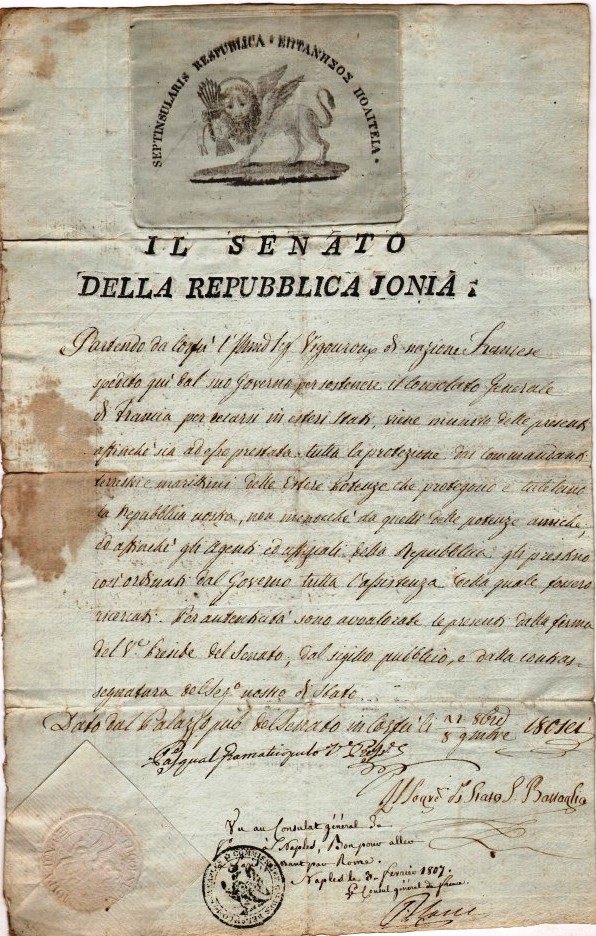 SEPTINSULARIS RESPUBLICA * ΕΠΤΑΝΗΣΟΣ ΠΟΛΙΤΕΙΑ *
IL SENATO
DELLA REPUBBLICA JONIA;
Partendo da Corfù l' Vigouroux di nazione Francese
spedito quì dal suo Governo per sostenere il Consolato Generale
di Francia per recarsi in esteri Stati, viene munito delle presenti
affinchè sia ad esso prestata tutta la protezione dai Commandanti
terrestri e marittimi delle Estere Potenze che protegono e tutelano
la Repubblica nostra, non menochè da quelli delle potenze amiche,
ed affinchè gli Agenti ed uffiziali della Repubblica gli prestino
così ordinati dal Governo tutta l'assistenza della quale fossero
ricercati. Per autenticità sono avvalorate le presenti dalla firma
del V.e Preside del Senato, dal sigillo pubblico, e dalla contras-
segnatura del Seg.o nostro di Stato
Dato dal Palazzo pub. del Senato in Corfù li 8 9mbre 180sei
di Stato Battaglia
Vu au Consulat général de
à Naples, Bon pour aller
avant par Rome.
Naples le 3. fevrier 1807.
Le Consul général de france